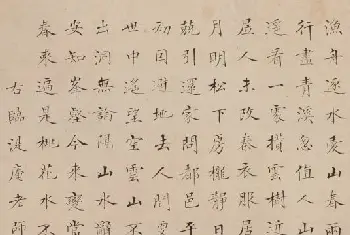 漁舟逐水愛山春兩
行盡青溪忽值人山
遙看一處攢雲樹近
居人未改秦衣服居
月明松下房櫳靜日
競引還家問都邑平
初因避地去人間更
世中遙望空雲山不
出洞無論隔山水辭
安知峯壑今來變當
春來遍是桃花水不
右臨庵老師